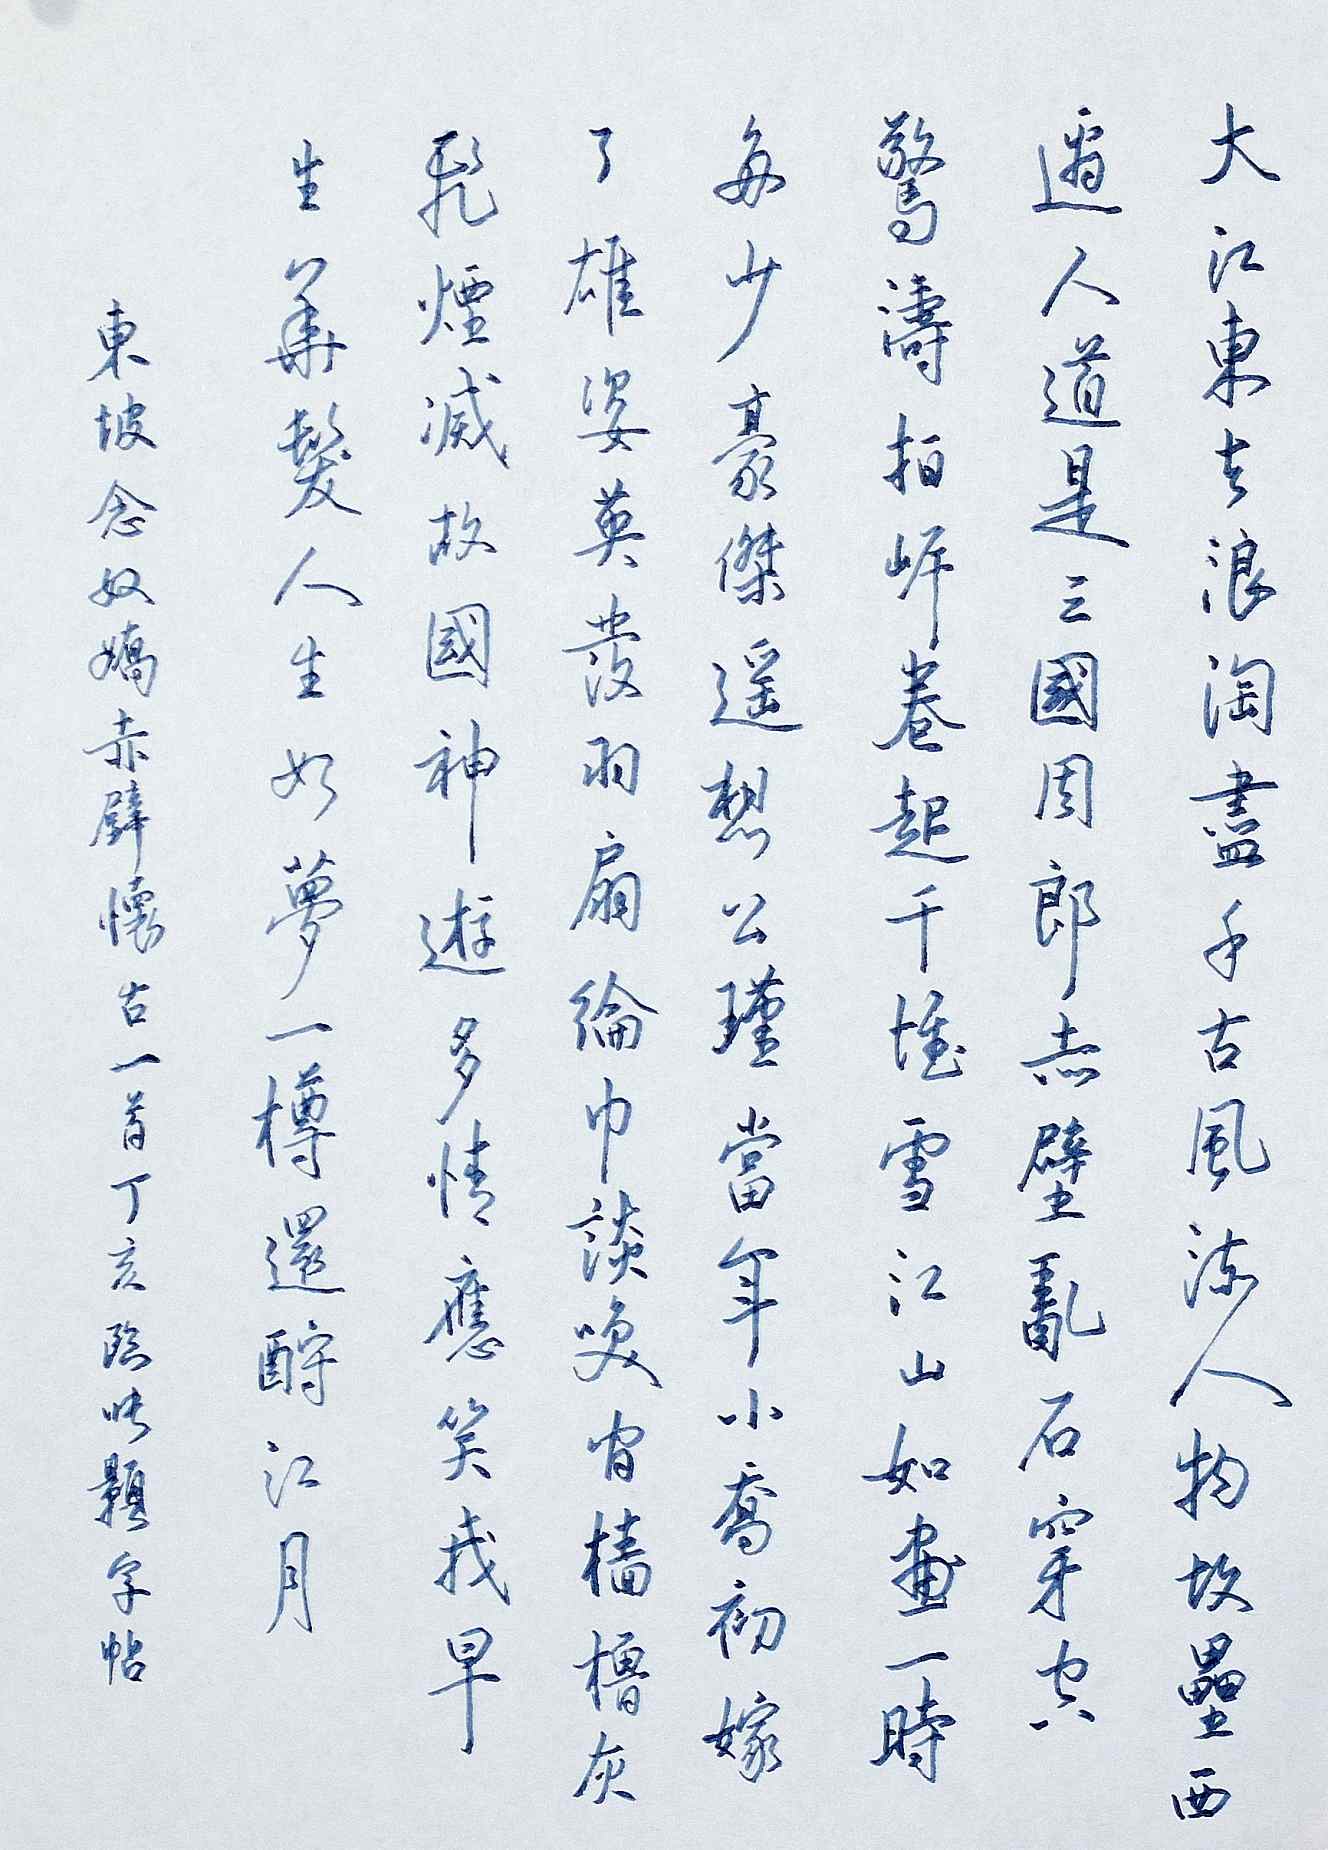 大江東去浪淘盡千古風流人物故壘西
邊人道是三國周郎赤壁亂石穿空
驚濤拍岸卷起千堆雪江山如畫一時
多少豪傑遥想公瑾當年小喬初嫁
了雄姿英發羽扇綸巾談咲間檣櫓灰
飛煙滅故國神遊多情應笑我早
生華髮人生如夢一樽還酹江月
東坡念奴嬌赤壁懷古一首丁亥臨字帖